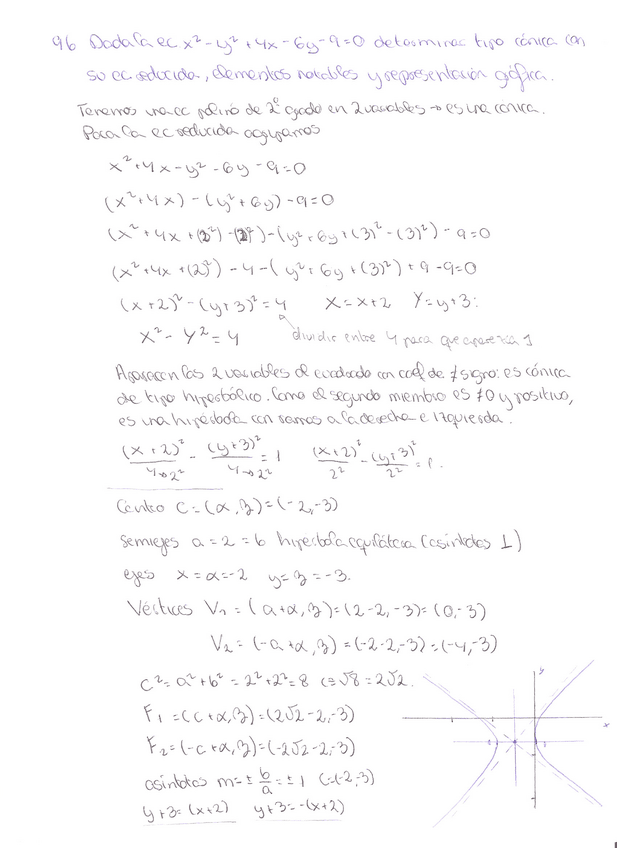 96 Dada la ec x² - y² + 4x - 6y - 9 = 0 determinar tipo cónica con
su ec reducida, elementos notables y representación gráfica.
Tenemos una ec polinó de 2º grado en 2 variables → es una cónica.
Para la ec reducida agrupamos
x² + 4x - y² - 6y - 9 = 0
(x² + 4x) - (y² + 6y) - 9 = 0
(x² + 4x + (2)² - (2)²) - (y² + 6y + (3)² - (3)²) - 9 = 0
(x² + 4x + (2)²) - 4 - (y² + 6y + (3)²) + 9 - 9 = 0
(x + 2)² - (y + 3)² = 4 X = x + 2 Y = y + 3:
X² - Y² = 4 dividir entre 4 para que aparezca 1
Aparecen las 2 variables al cuadrado con coef de ≠ signo: es cónica
de tipo hiperbólico. Como el segundo miembro es ≠ 0 y positivo,
es una hipérbola con ramas a la derecha e izquierda.
(x + 2)²/4→2² - (y + 3)²/4→2² = 1 (x + 2)²/2² - (y + 3)²/2² = 1.
Centro C = (α, β) = (-2, -3)
semiejes a = 2 = b hipérbola equilátera (asíntotas ⊥)
ejes x = α = -2 y = β = -3.
Vértices V₁ = (a + α, β) = (2 - 2, -3) = (0, -3)
V₂ = (-a + α, β) = (-2 - 2, -3) = (-4, -3)
c² = a² + b² = 2² + 2² = 8 c = √8 = 2√2.
F₁ = (c + α, β) = (2√2 - 2, -3)
F₂ = (-c + α, β) = (-2√2 - 2, -3)
asíntotas m = ± b/a = ± 1 C = (-2, -3)
y + 3 = (x + 2) y + 3 = -(x + 2)
y
x